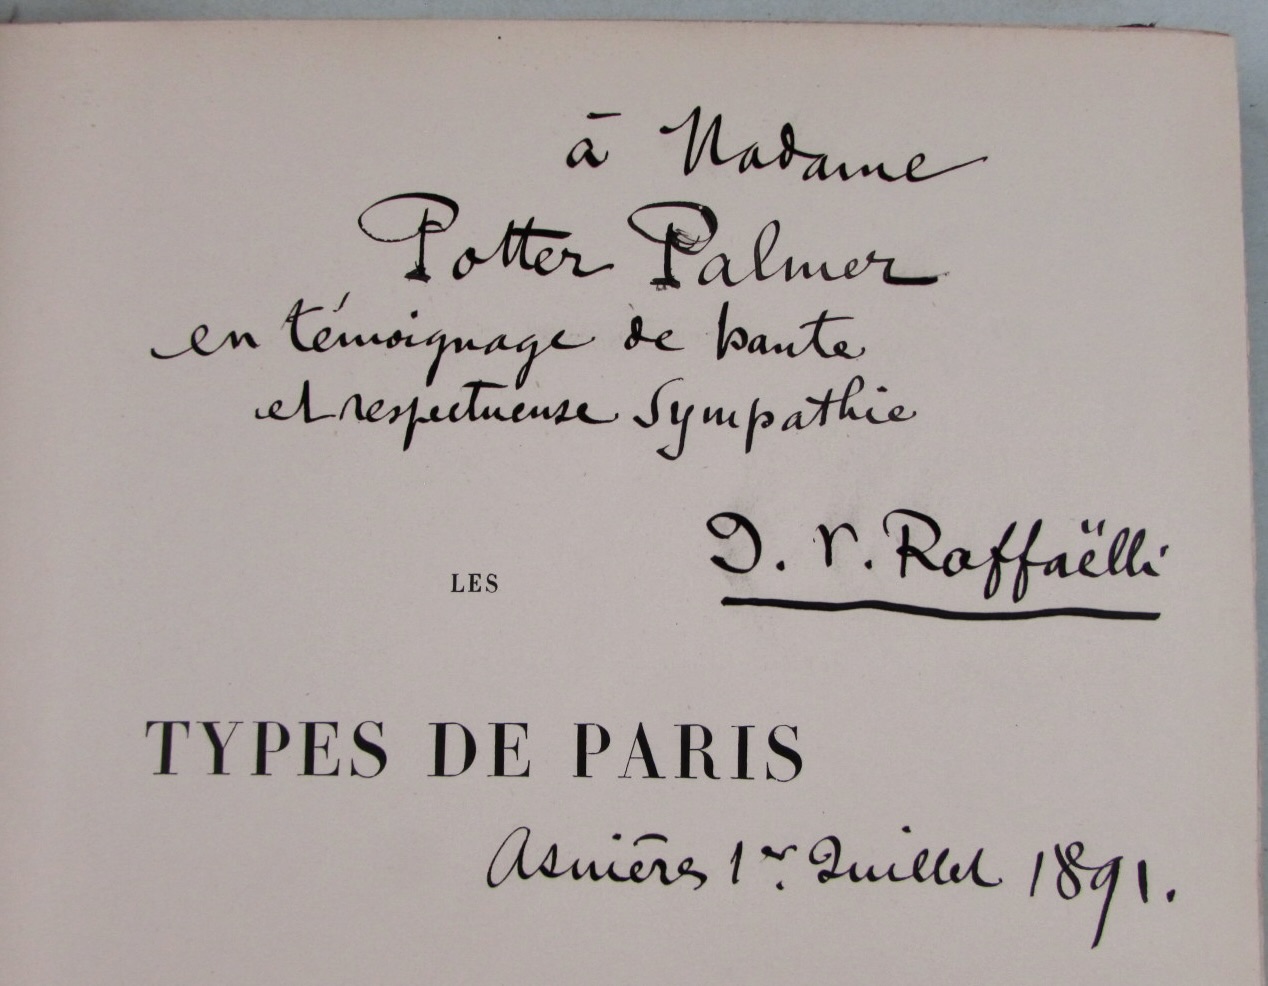 à Madame
Potter Palmer
en témoignage de haute
et respectueuse Sympathie
J. F. Raffaëlli
LES
TYPES DE PARIS
Asnières 1er. Juillet 1891.